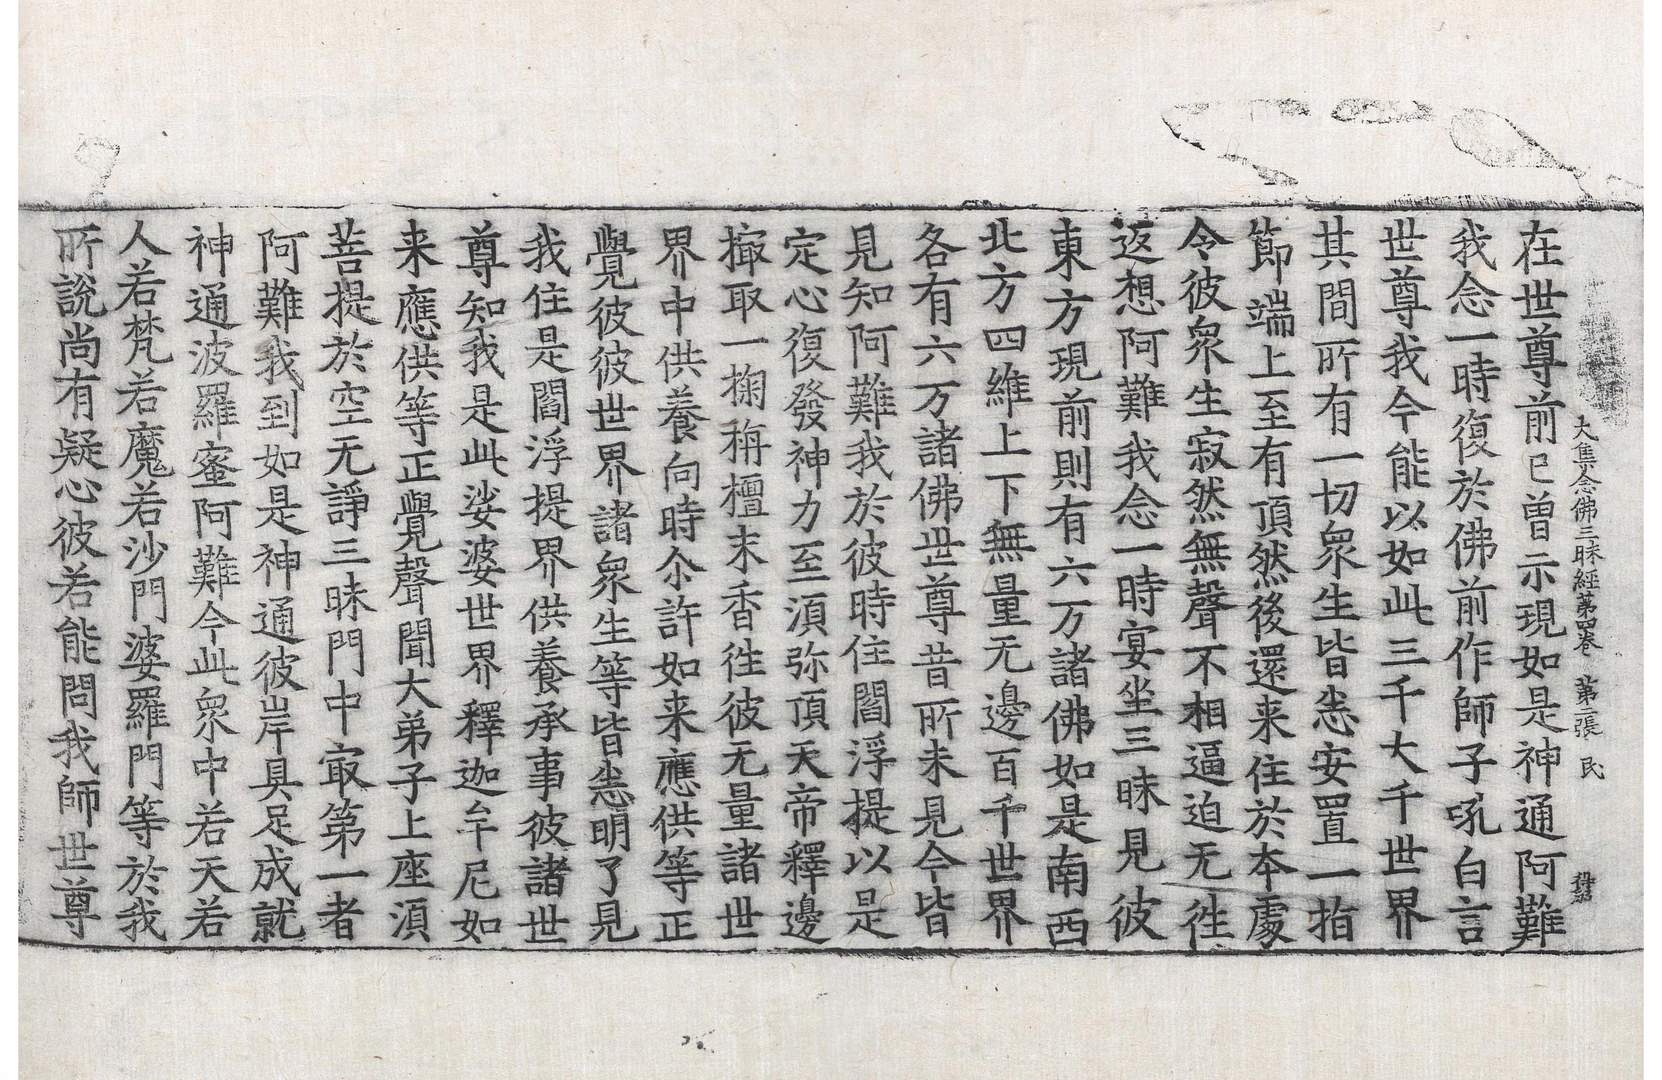 大集念佛三昧經第四卷 第二張 民
在世尊前已曾示現如是神通阿難
我念一時復於佛前作師子吼白言
世尊我今能以如此三千大千世界
其間所有一切衆生皆悉安置一指
節端上至有頂然後還来住於本處
令彼衆生寂然無聲不相逼迫无徃
返想阿難我念一時宴坐三昧見彼
東方現前則有六万諸佛如是南西
北方四維上下無量无邊百千世界
各有六万諸佛世尊昔所未見今皆
見知阿難我於彼時住閻浮提以是
定心復發神力至須弥頂天帝釋邊
撮取一掬栴檀末香徃彼无量諸世
界中供養向時尒許如来應供等正
覺彼彼世界諸衆生等皆悉明了見
我住是閻浮提界供養承事彼諸世
尊知我是此娑婆世界釋迦牟尼如
来應供等正覺聲聞大弟子上座須
菩提於空无諍三昧門中㝡第一者
阿難我到如是神通彼岸具足成就
神通波羅蜜阿難今此衆中若天若
人若梵若魔若沙門婆羅門等於我
所說尚有疑心彼若能問我師世尊